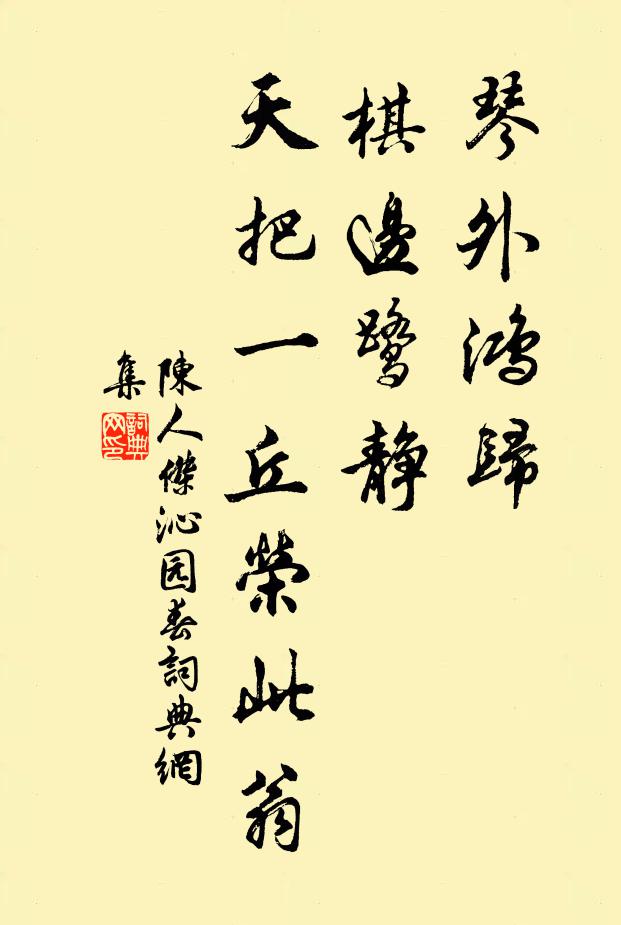 琴外鸿歸
棋邊鹭静
天把一丘榮此翁
陳人傑沁园春詞典網
集
詞典网印